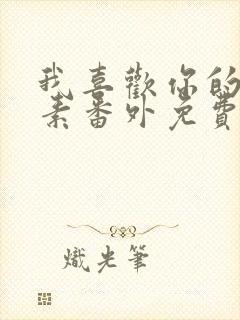 我喜歡你的
素番外免費
熾光筆